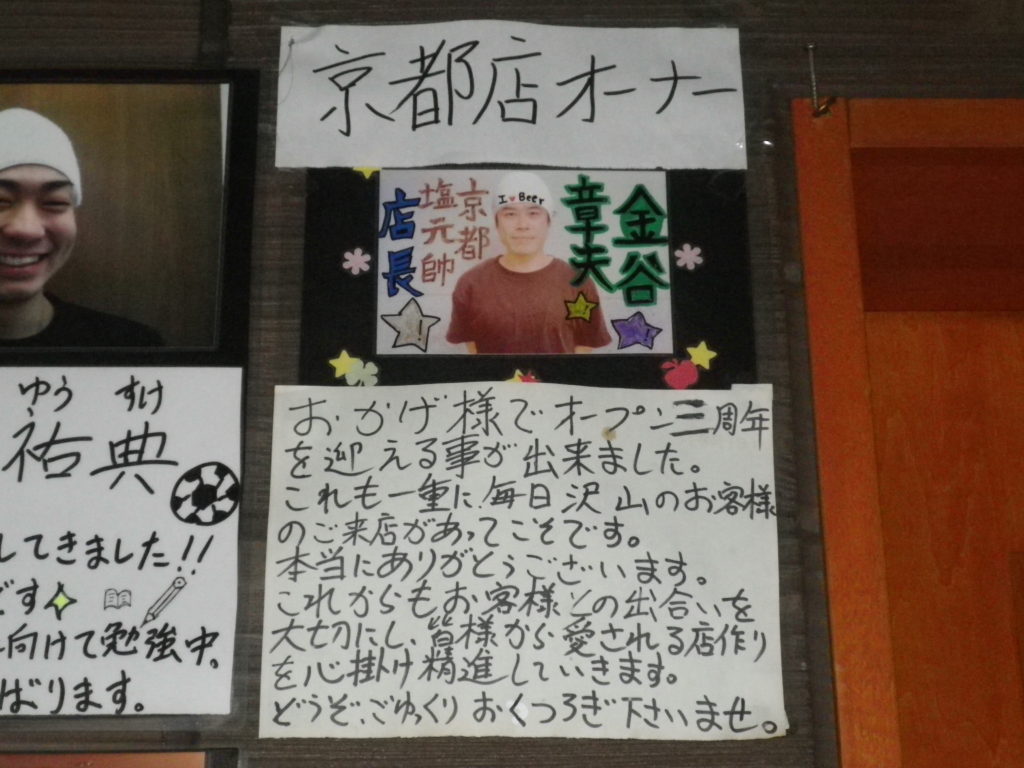 京都店オーナー
金谷
章夫
京都
塩元帥
店長
I ♥ Beer
おかげ様でオープン三周年
を迎える事が出来ました。
これも一重に毎日沢山のお客様
のご来店があってこそです。
本当にありがとうございます。
これからもお客様との出合いを
大切にし、皆様から愛される店作り
を心掛け精進していきます。
どうぞ、ごゆっくりおくつろぎ下さいませ。
ゆう すけ
祐典
してきました!!
です
向けて勉強中、
ばります。